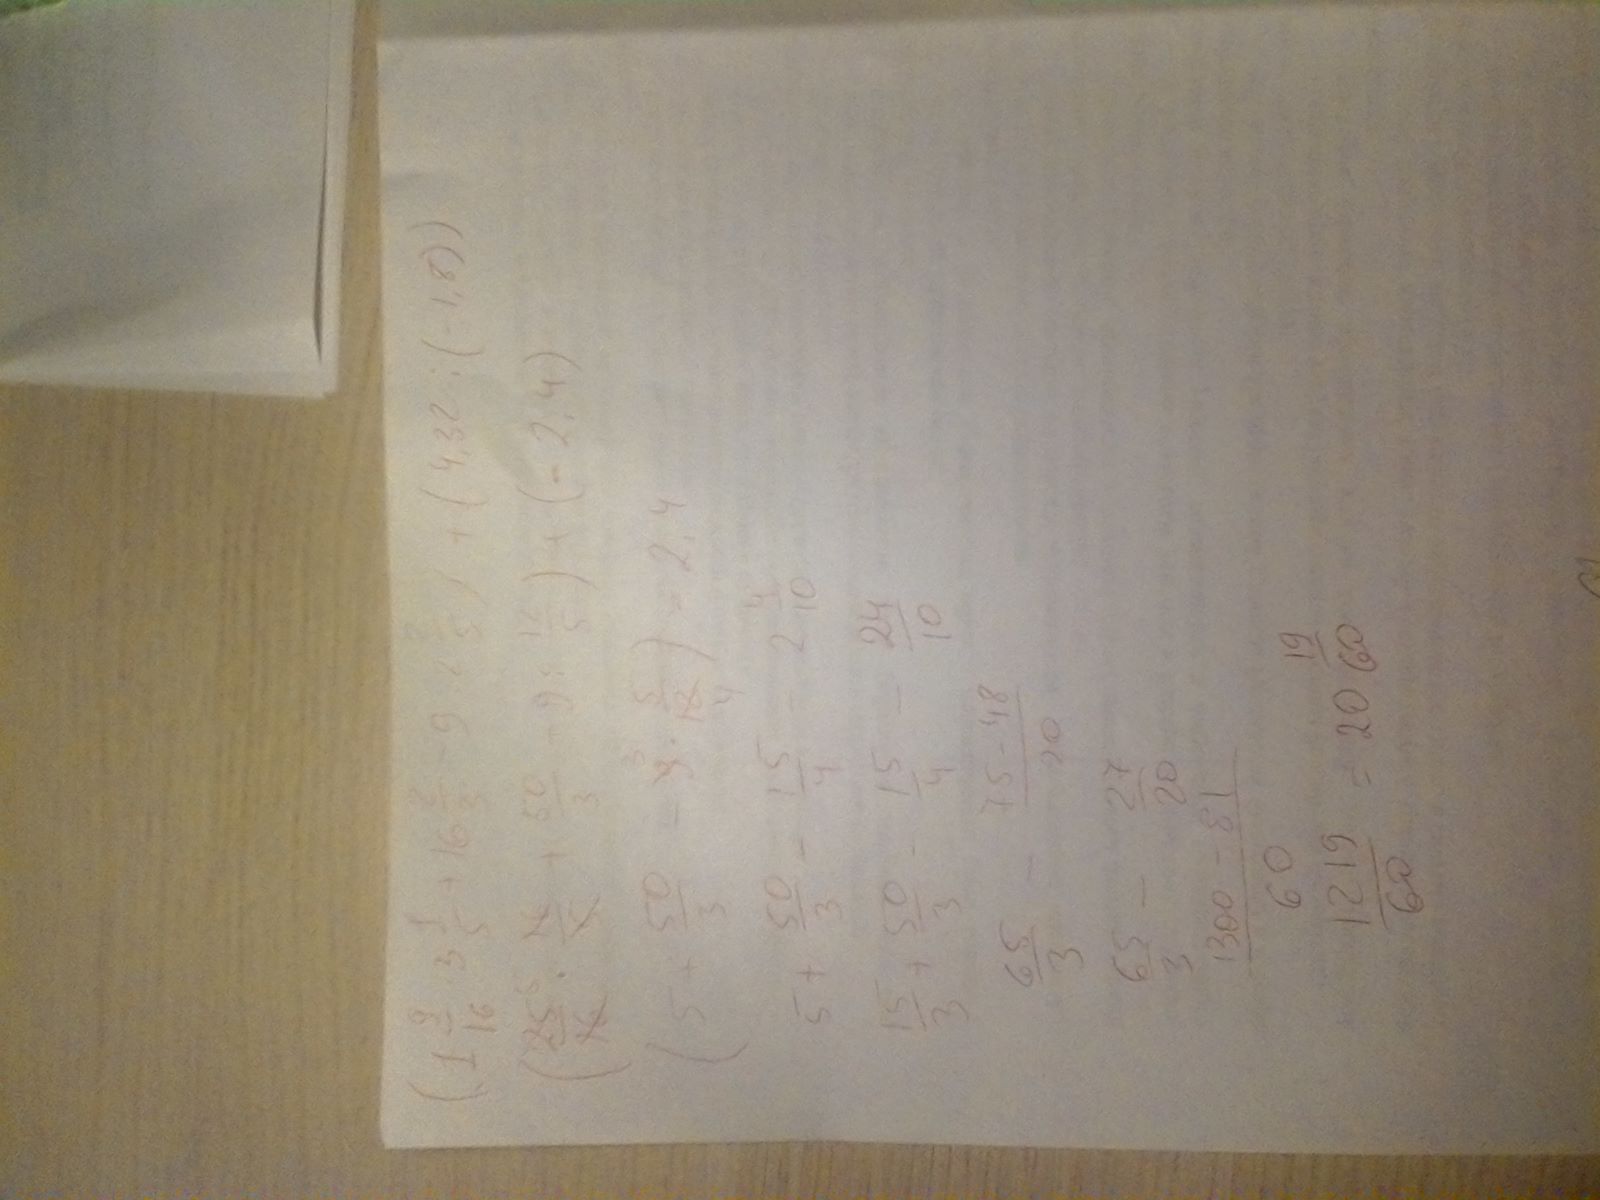 (1 9/16 · 3 1/5 + 16 2/3 - 9 : 2 2/5) + (4,32 : (-1,8))
(25/16 · 16/5 + 50/3 - 9 : 12/5) + (-2,4)
(5 + 50/3 - 9 · 5/12) - 2,4
5 + 50/3 - 15/4 - 2 4/10
15/3 + 50/3 - 15/4 - 24/10
65/3 - 75-48/20
65/3 - 27/20
1300-81/60
1219/60 = 20 19/60